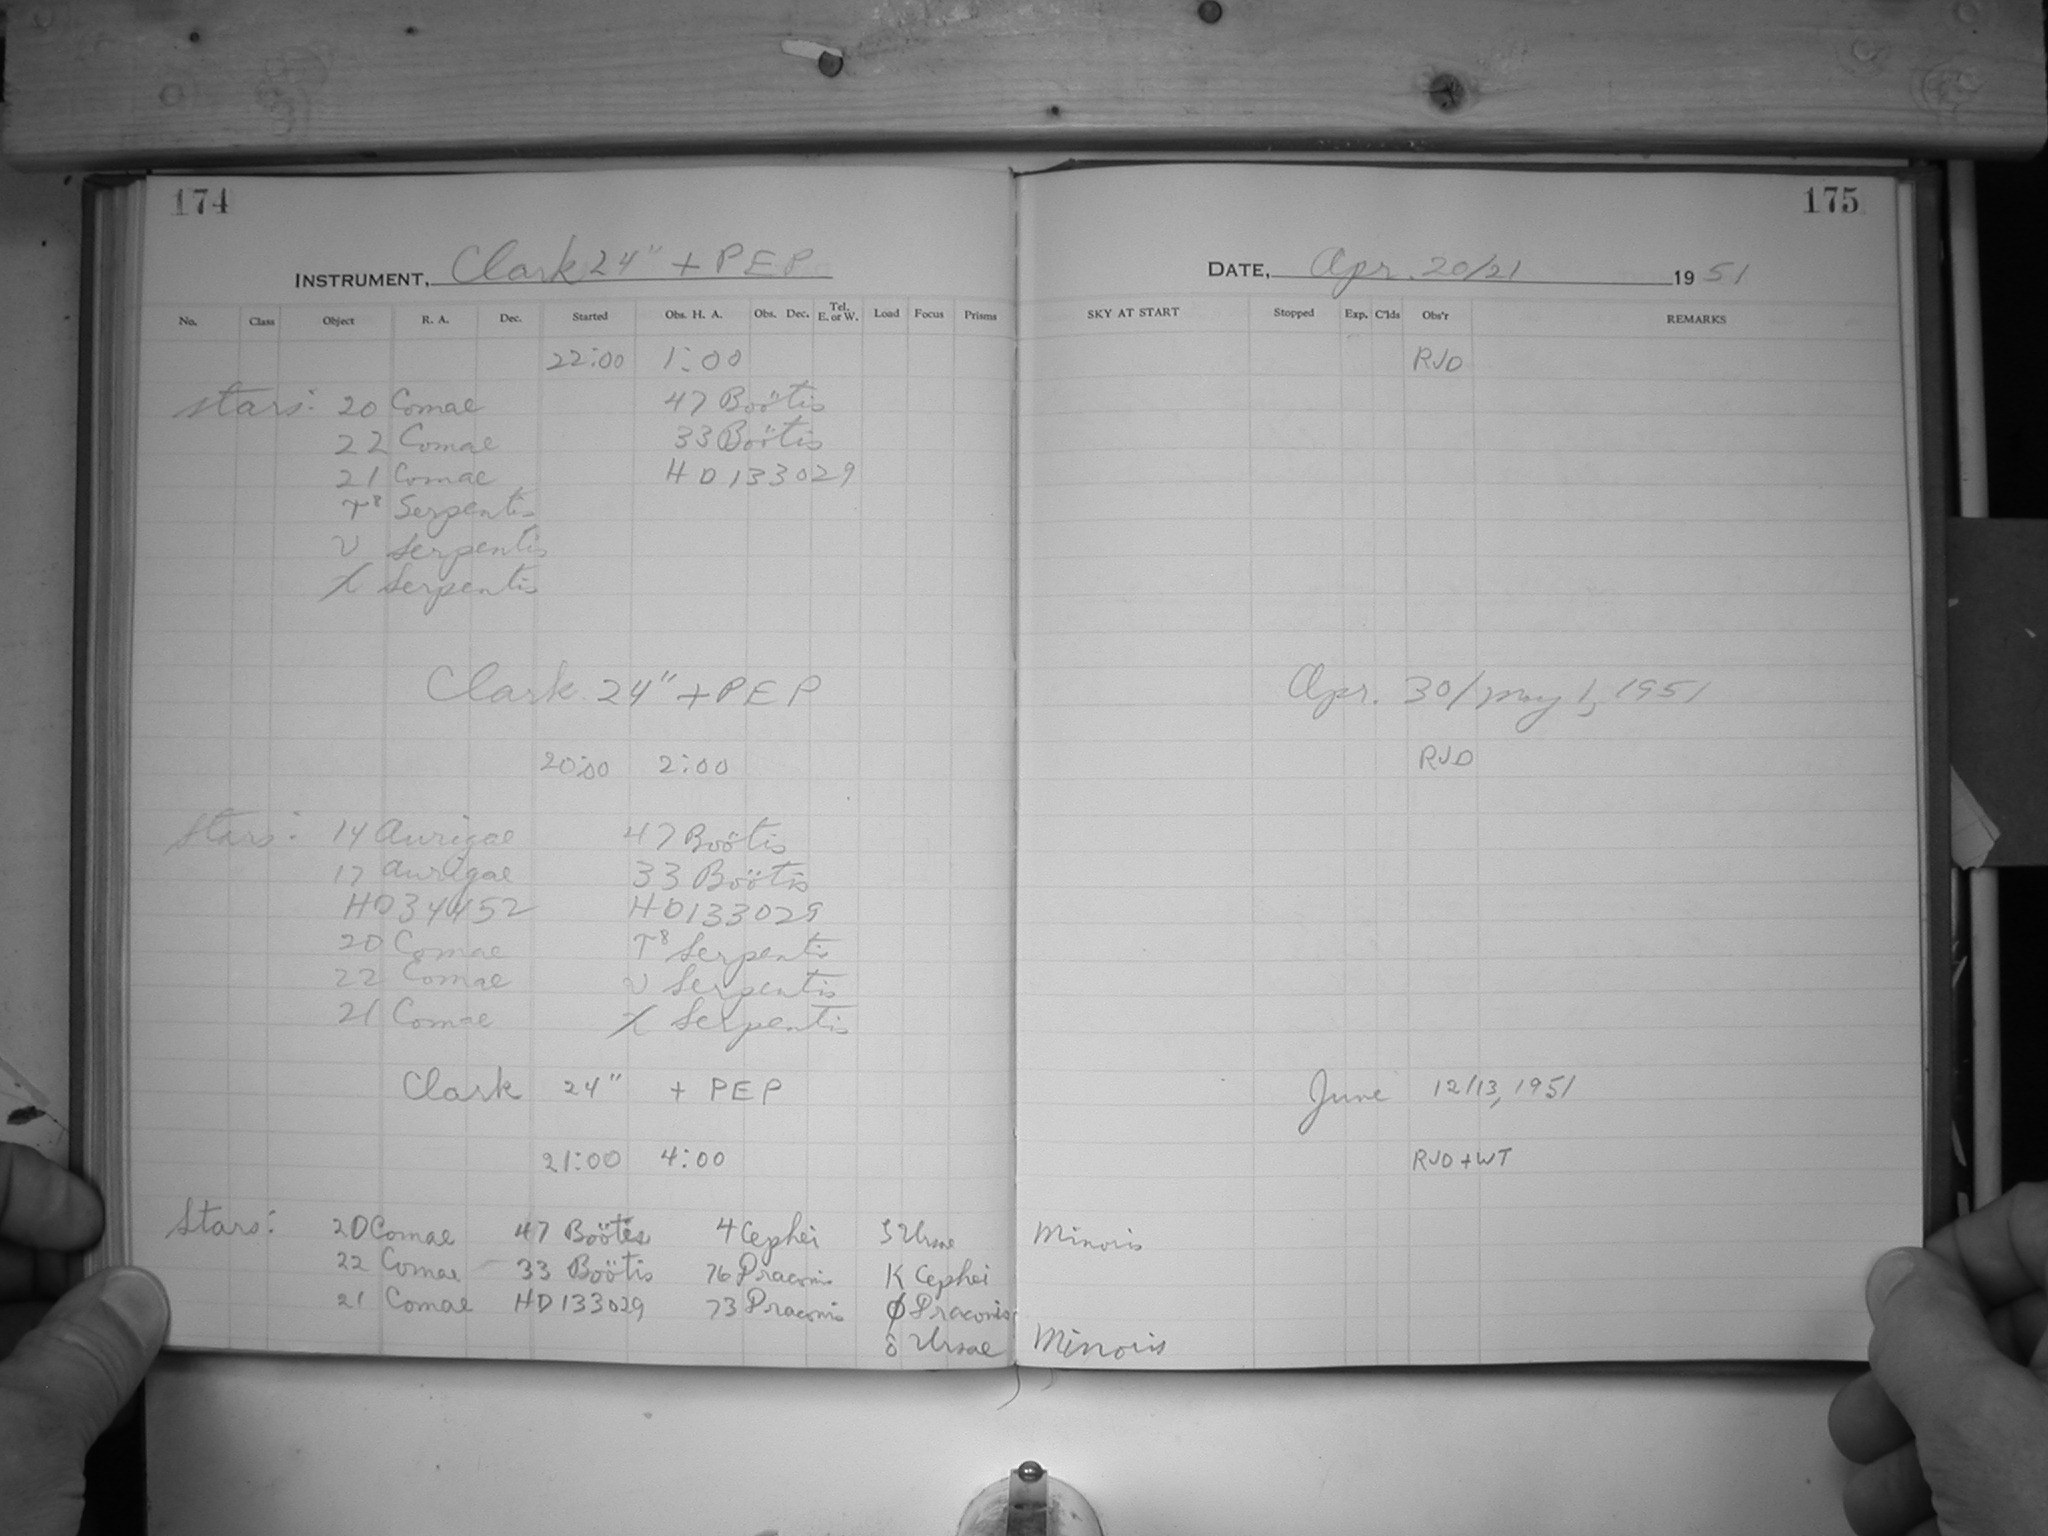 174
175
INSTRUMENT, Clark 24" + PEP
DATE, Apr. 20/21 19 51
No. Class Object R. A. Dec. Started Obs. H. A. Obs. Dec. Tel. E. or W. Load Focus Prisms SKY AT START Stopped Exp. C'lds Obs'r REMARKS
22:00 1:00 RJD
Stars: 20 Comae 47 Boötis
22 Comae 33 Boötis
21 Comae HD 133029
τ⁸ Serpentis
υ Serpentis
χ Serpentis
Clark 24" + PEP Apr. 30/May 1, 1951
20:00 2:00 RJD
Stars: 14 Aurigae 47 Boötis
17 Aurigae 33 Boötis
HD34452 HD133029
20 Comae τ⁸ Serpentis
22 Comae υ Serpentis
21 Comae χ Serpentis
Clark 24" + PEP June 12/13, 1951
21:00 4:00 RJD + WT
Stars: 20 Comae 47 Boötis 4 Cephei 5 Ursae Minoris
22 Comae 33 Boötis 76 Draconis K Cephei
21 Comae HD133029 73 Draconis φ Draconis
δ Ursae Minoris